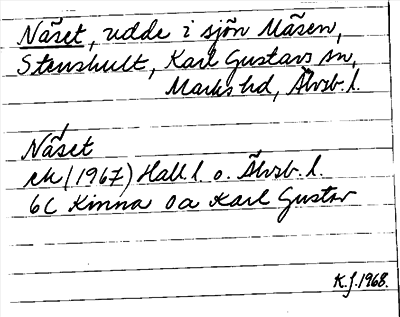 Näset, udde i sjön Mäsen,
Stenshult, Karl Gustavs sn,
Marks hd, Älvsb. l.
Näset
ek (1967) Hall. l. o. Älvsb. l.
6C Kinna 0a Karl Gustav
K.J. 1968.